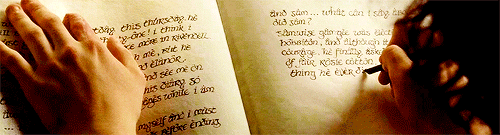 this thursday, he
I think I
more in Rivendell
me, but he
Elanor.
and see me on
this diary, so
while I am
myself and I must
before ending
and Sam... What can I say
old Sam?
Samwise Gamgee was
Hobbiton, and although
courage... he finally
of fair Rosie Cotton
thing he ever